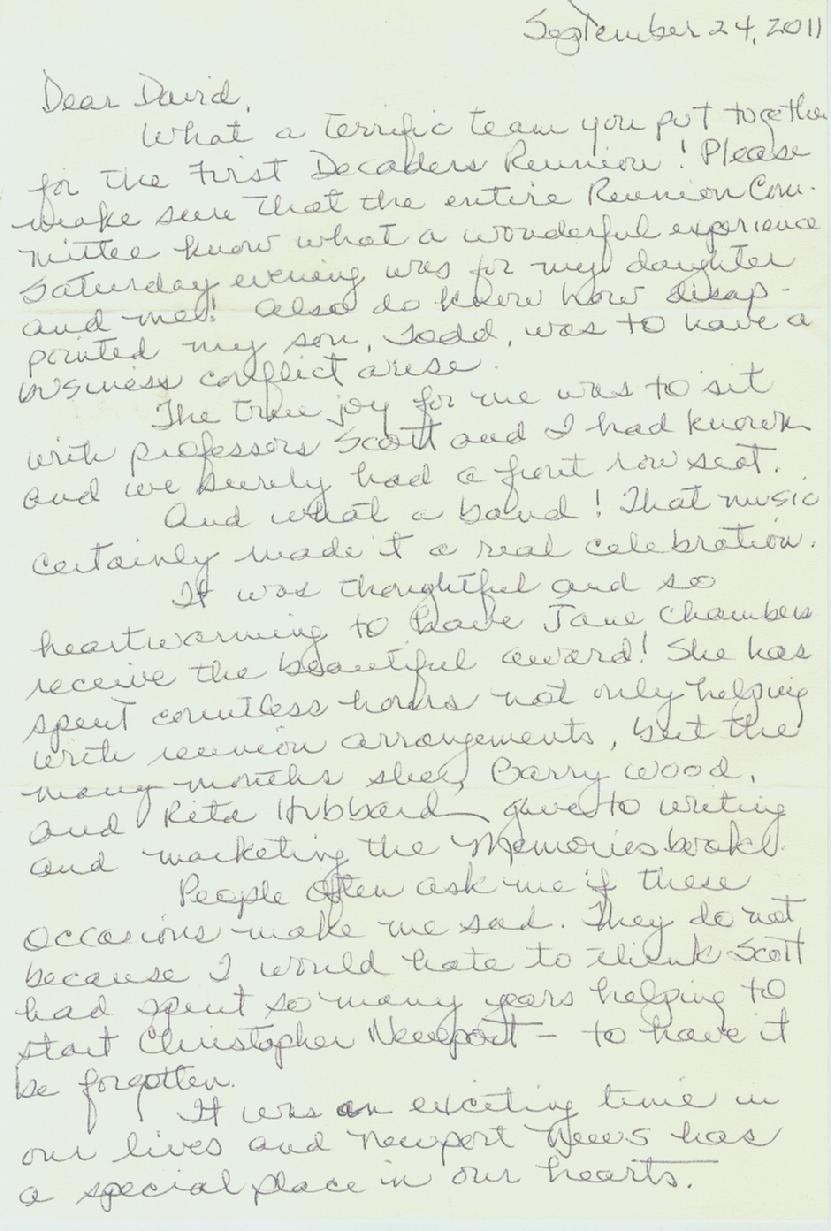 September 24, 2011
Dear David,
What a terrific team you put together
for the First Decaders Reunion! Please
make sure that the entire Reunion Com-
mittee know what a wonderful experience
Saturday evening was for my daughter
and me! Also do know how disap-
pointed my son, Todd, was to have a
business conflict arise.
The true joy for me was to sit
with professors Scott and I had known
and we surely had a front row seat.
And what a band! That music
certainly made it a real celebration.
It was thoughtful and so
heartwarming to have Jane Chambers
receive the beautiful award! She has
spent countless hours not only helping
with reunion arrangements, but the
many months she, Barry Wood,
and Rita Hubbard gave to writing
and marketing the Memories book.
People often ask me if these
occasions make me sad. They do not
because I would hate to think Scott
had spent so many years helping to
start Christopher Newport – to have it
be forgotten.
It was an exciting time in
our lives and Newport News has
a special place in our hearts.